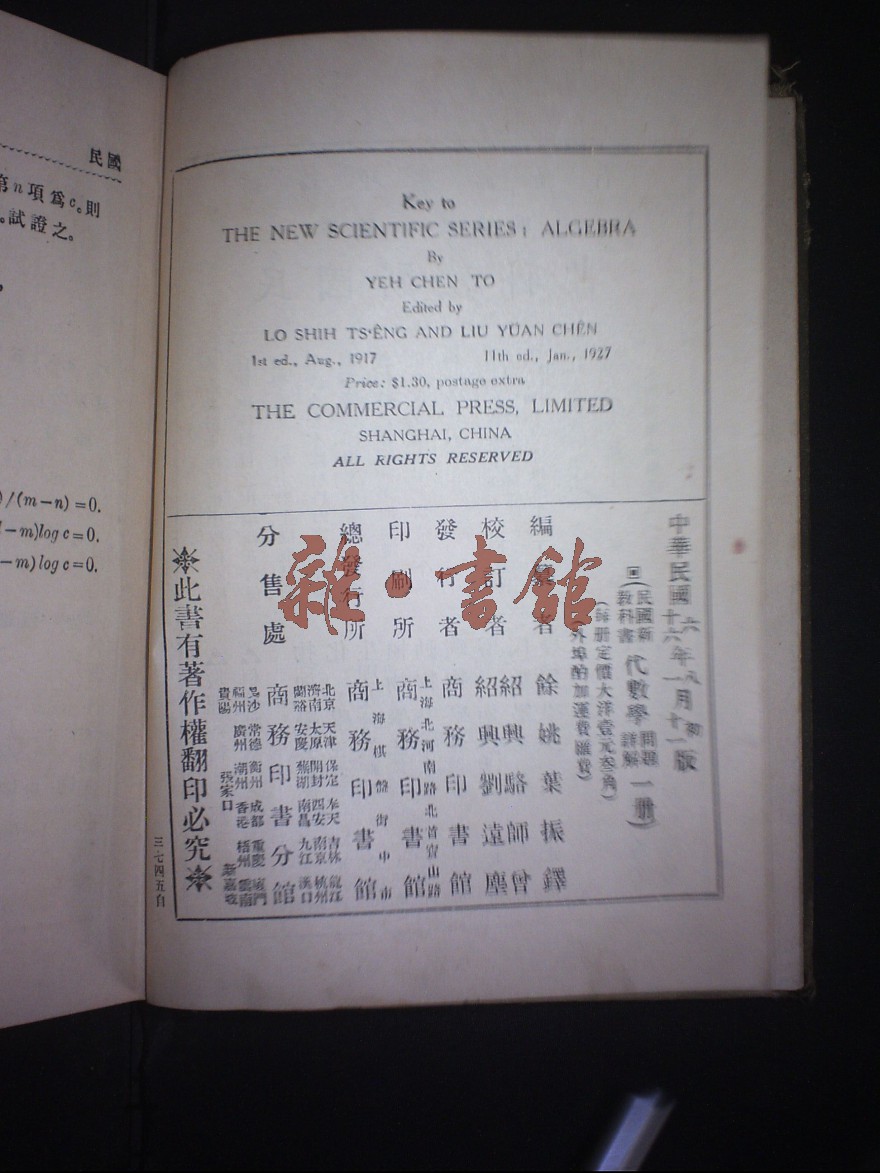 民國
第n項爲c。則
。試證之。
)/(m−n)=0.
−m)log c=0.
−m)log c=0.
Key to
THE NEW SCIENTIFIC SERIES: ALGEBRA
By
YEH CHEN TO
Edited by
LO SHIH TS'ÊNG AND LIU YÜAN CHÊN
1st ed., Aug., 1917 11th ed., Jan., 1927
Price: $1.30, postage extra
THE COMMERCIAL PRESS, LIMITED
SHANGHAI, CHINA
ALL RIGHTS RESERVED
中華民國六年八月初版
十六年一月十一版
(民國新教科書代數學問題詳解一册)
(每册定價大洋壹元叁角)
(外埠酌加運費匯費)
編纂者 餘姚葉振鐸
校訂者 紹興駱師曾
紹興劉遠塵
發行者 商務印書館
印刷所 上海北河南路北首寶山路
商務印書館
總發行所 上海棋盤街中市
商務印書館
分售處 商務印書分館
北京 天津 保定 奉天 吉林 龍江
濟南 太原 開封 西安 南京 杭州
蘭谿 安慶 蕪湖 南昌 九江 漢口
長沙 常德 衡州 成都 重慶 廈門
福州 廣州 潮州 香港 梧州 雲南
貴陽 張家口 新嘉坡
此書有著作權翻印必究
三七四五自
雜·書館